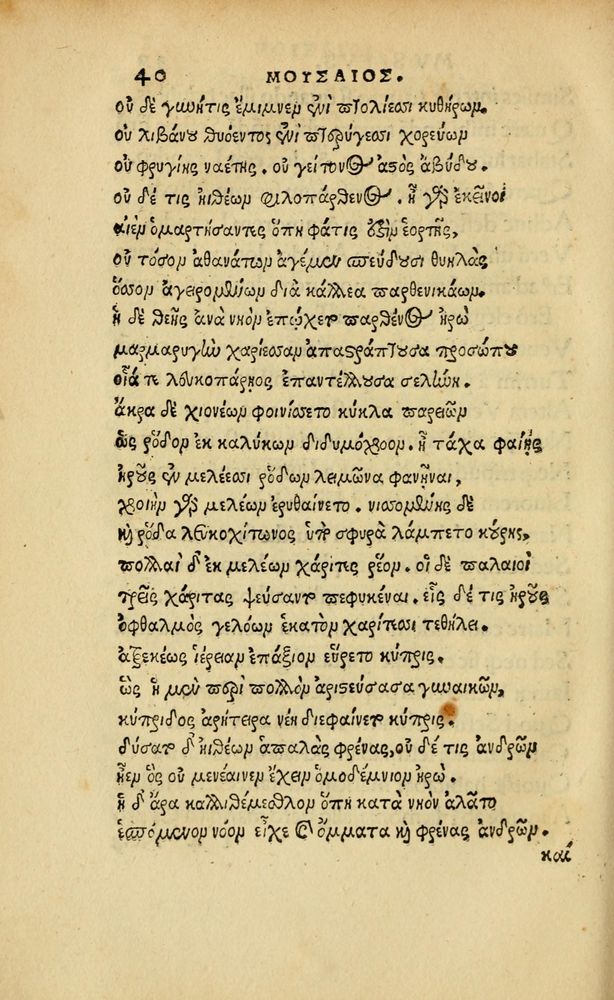 40 ΜΟΥΣΑΙΟΣ.
οὐ δὲ γυνή τις ἔμιμνεν ἐνὶ πτολίεσσι κυθήρων.
οὐ λιβάνου θυόεντος ἐνὶ πτερύγεσσι χορεύων
οὐ φρυγίης ναέτης. οὐ γείτονος ἀστὸς ἀβύδου.
οὐ δέ τις ἠιθέων φιλοπάρθενος. ἦ γὰρ ἐκεῖνοι
αἰὲν ὁμαρτήσαντες ὅπη φάτις ἐστὶν ἑορτῆς,
οὐ τόσον ἀθανάτων ἀγέμεν σπεύδουσι θυηλὰς
ὅσσον ἀγειρομένων διὰ κάλλεα παρθενικάων.
ἡ δὲ θεῆς ἀνὰ νηὸν ἐπῴχετο παρθένος ἡρὼ
μαρμαρυγὴν χαρίεσσαν ἀπαστράπτουσα προσώπου
οἷά τε λευκοπάρῃος ἐπαντέλλουσα σελήνη.
ἄκρα δὲ χιονέων φοινίσσετο κύκλα παρειῶν
ὡς ῥόδον ἐκ καλύκων διδυμόχροον. ἦ τάχα φαίης
ἡροῦς ἐν μελέεσσι ῥόδων λειμῶνα φανῆναι,
χροιὴν γὰρ μελέων ἐρυθαίνετο. νισσομένης δὲ
καὶ ῥόδα λευκοχίτωνος ὑπὸ σφυρὰ λάμπετο κούρης,
πολλαὶ δ' ἐκ μελέων χάριτες ῥέον. οἱ δὲ παλαιοὶ
τρεῖς χάριτας ψεύσαντο πεφυκέναι. εἷς δέ τις ἡροῦς
ὀφθαλμὸς γελόων ἑκατὸν χαρίτεσσι τεθήλει.
ἀτρεκέως ἱέρειαν ἐπάξιον εὕρετο κύπρις.
ὣς ἡ μὲν περὶ πολλὸν ἀριστεύσασα γυναικῶν,
κύπριδος ἀρήτειρα νέη διεφαίνετο κύπρις.
δύσατο δ' ἠιθέων ἁπαλὰς φρένας, οὐ δέ τις ἀνδρῶν
ἦεν ὃς οὐ μενέαινεν ἔχειν ὁμοδέμνιον ἡρώ.
ἡ δ' ἄρα καλλιθέμεθλον ὅπη κατὰ νηὸν ἀλᾶτο
ἑσπόμενον νόον εἶχε καὶ ὄμματα καὶ φρένας ἀνδρῶν.
καὶ